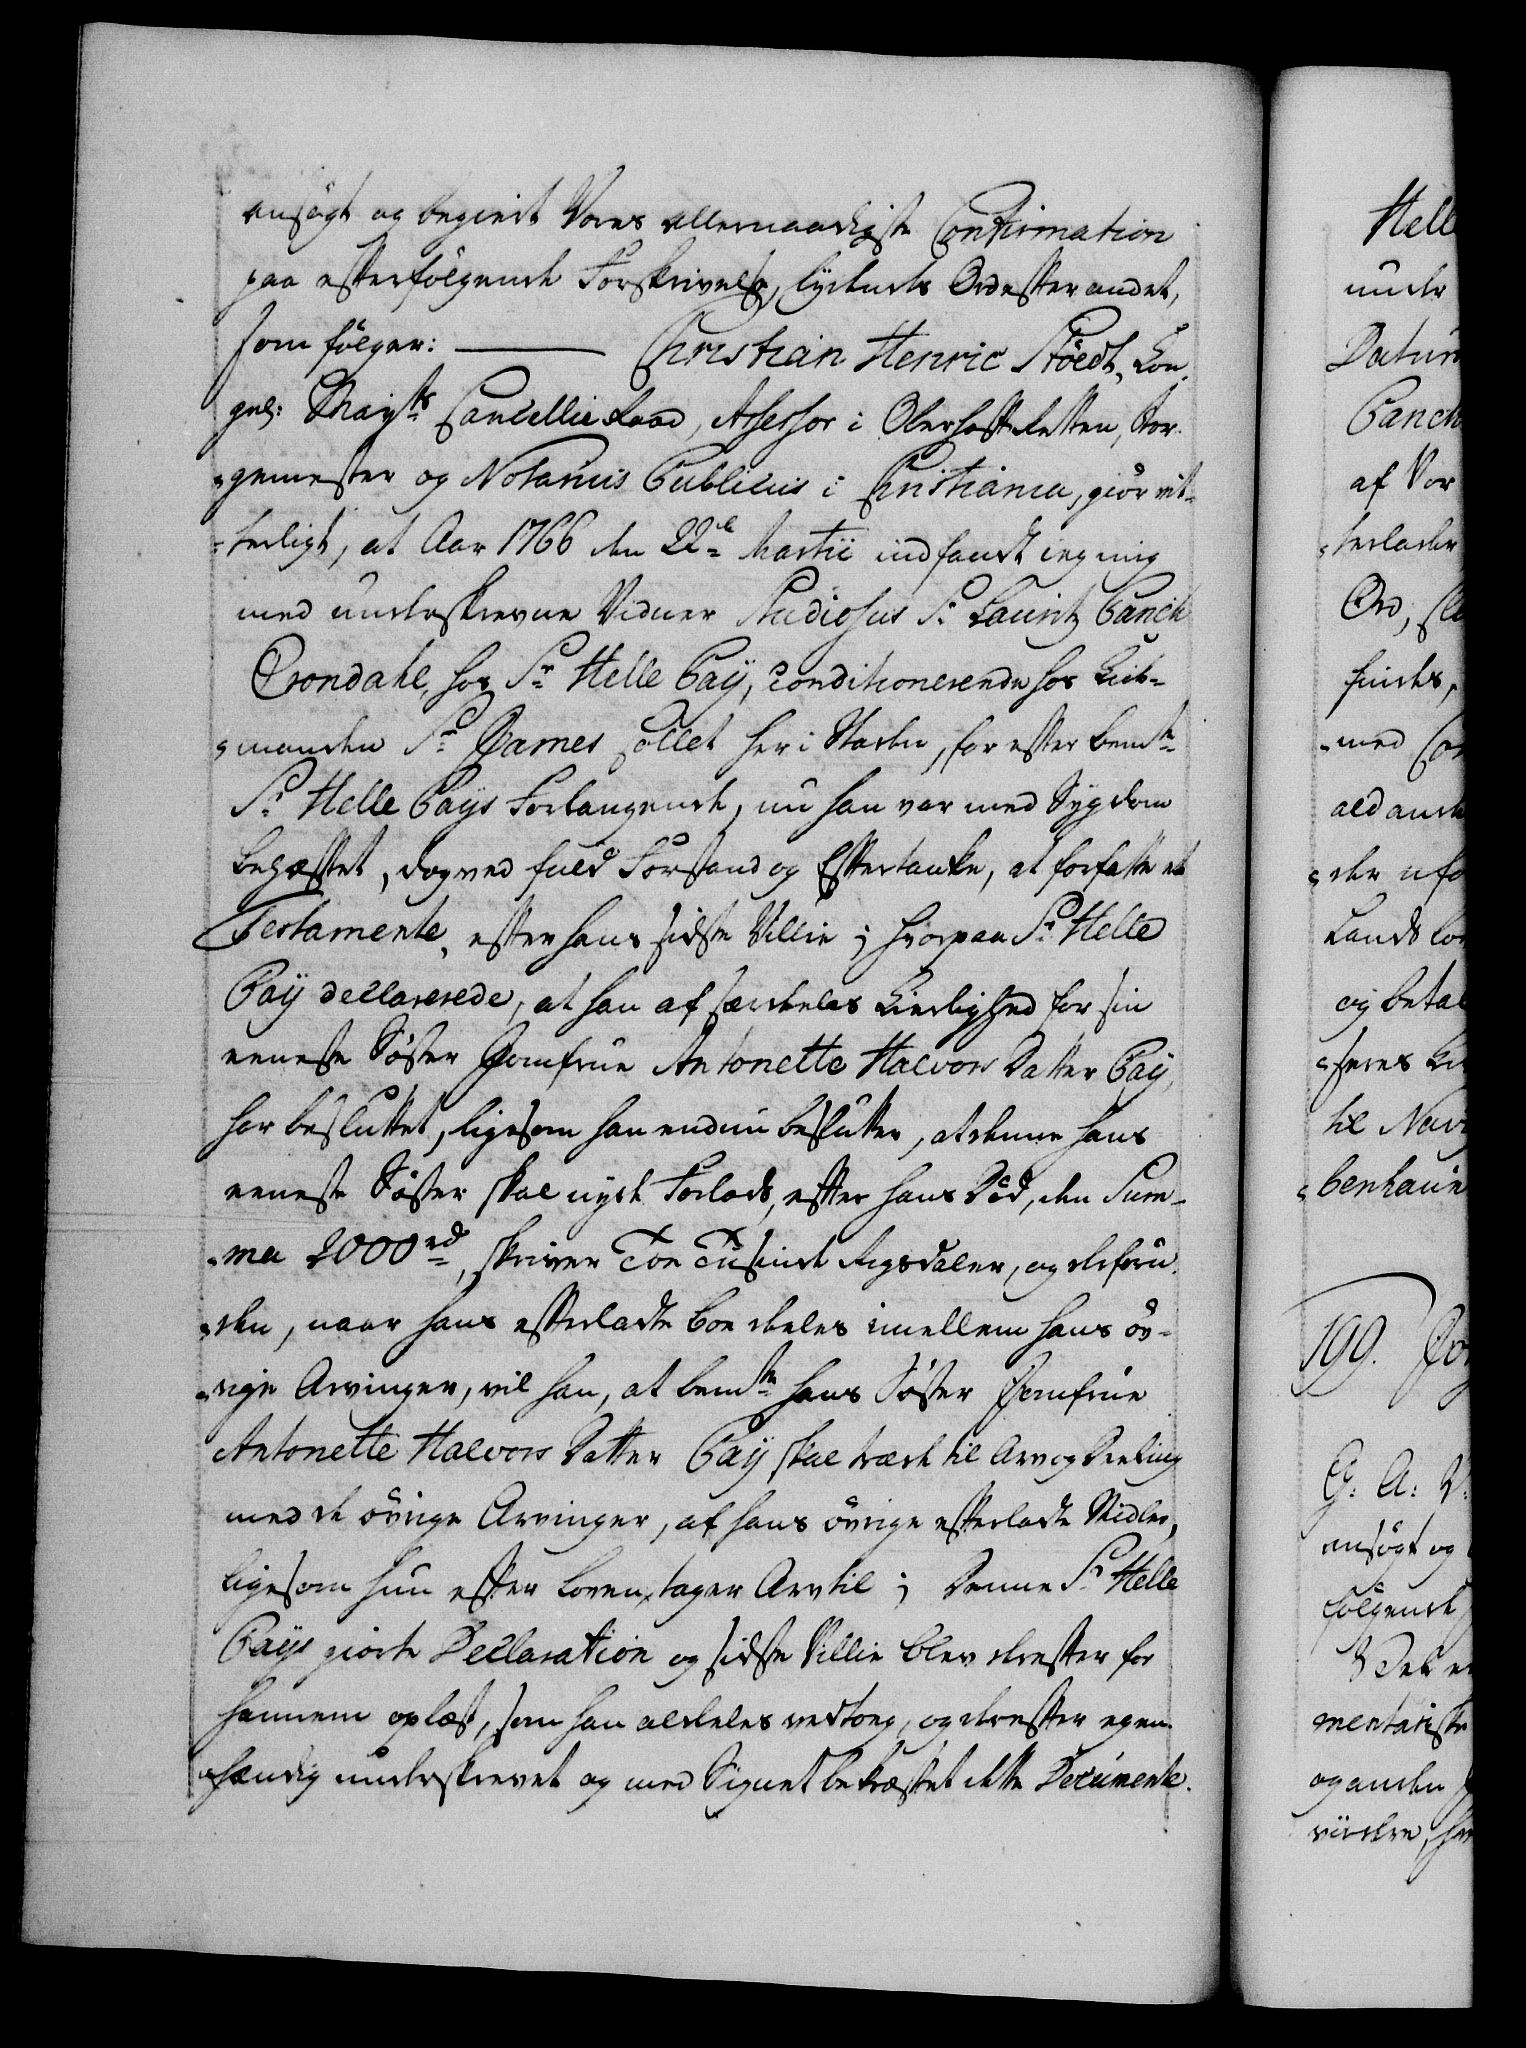 ansøgt og begiert Vores allernaadigste Confirmation
paa efterfølgende Forskrivelse, lydende Ord efter andet,
som følger: Christian Henric Stöedt, Kon¬
gel: Mayts Cancellie Raad, Assessor i Oberhoffretten, Bor¬
gemester og Notarius Publicus i Christiania, giør vit¬
terligt, at Aar 1766 den 22de Martii indfandt ieg mig
med underskrevne Vidner Studiosus Sr Lauritz Panck
Crondahl, hos Sr Helle Paij, conditionerende hos Kiøb¬
manden Sr James Collet her i Staden, for efter bemte
Sr Helle Paijs Forlangende, nu han var med Sygdom
behæftet, dog ved fuld Forstand og Eftertanke, at forfatte et
Testamente, efter hans sidste Villie; hvorpaa Sr Helle
Paij declarerede, at han af særdeles Kierlighed for sin
eeneste Søster Jomfrue Antonette Halvors Datter Paij,
har besluttet, ligesom han endnu beslutter, at denne hans
eeneste Søster skal nyde Forlods, efter hans Død, den Sum¬
ma 2000rd, skriver Toe Tusinde Rigsdaler, og desforu¬
den, naar hans efterladte Boe deeles imellem hans øv¬
rige Arvinger, vil han, at bemte hans Søster Jomfrue
Antonette Halvors Datter Paij skal træde til Arv og Deeling
med de øvrige Arvinger, af hans øvrige efterladte Midler,
ligesom hun efter Loven tager Arv til; Denne Sr Helle
Paijs giorte Declaration og sidste Villie blev derefter for
hannem oplæst, som han aldeles vedtog, og derefter egen¬
hændig underskrevet og med Signet bekræftet dette Documente.
Helle
under
Datum
Panck
af Vor
terlader
Ord,
findes,
med
ald anden
Lands Lov
og betal
til Nav
benhavn
199.
G: A: V:
ansøgt og
følgende
Det
mentariske
og anden